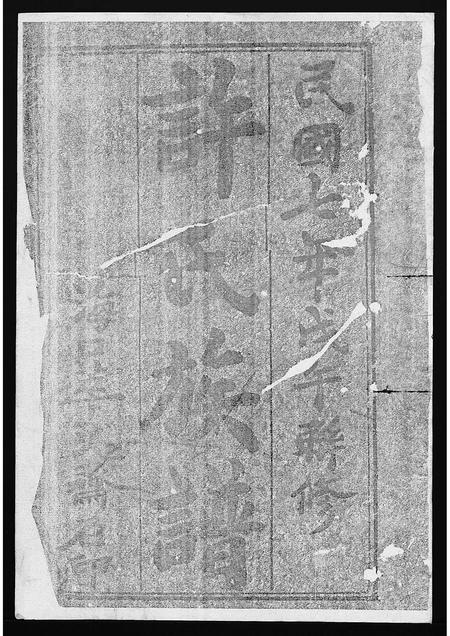 民國七年戊午聯修
許氏族譜
海口
印